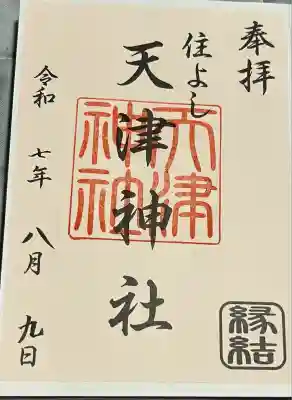 奉拝
住よし
天津神社
天津
神社
令和七年八月九日
縁結